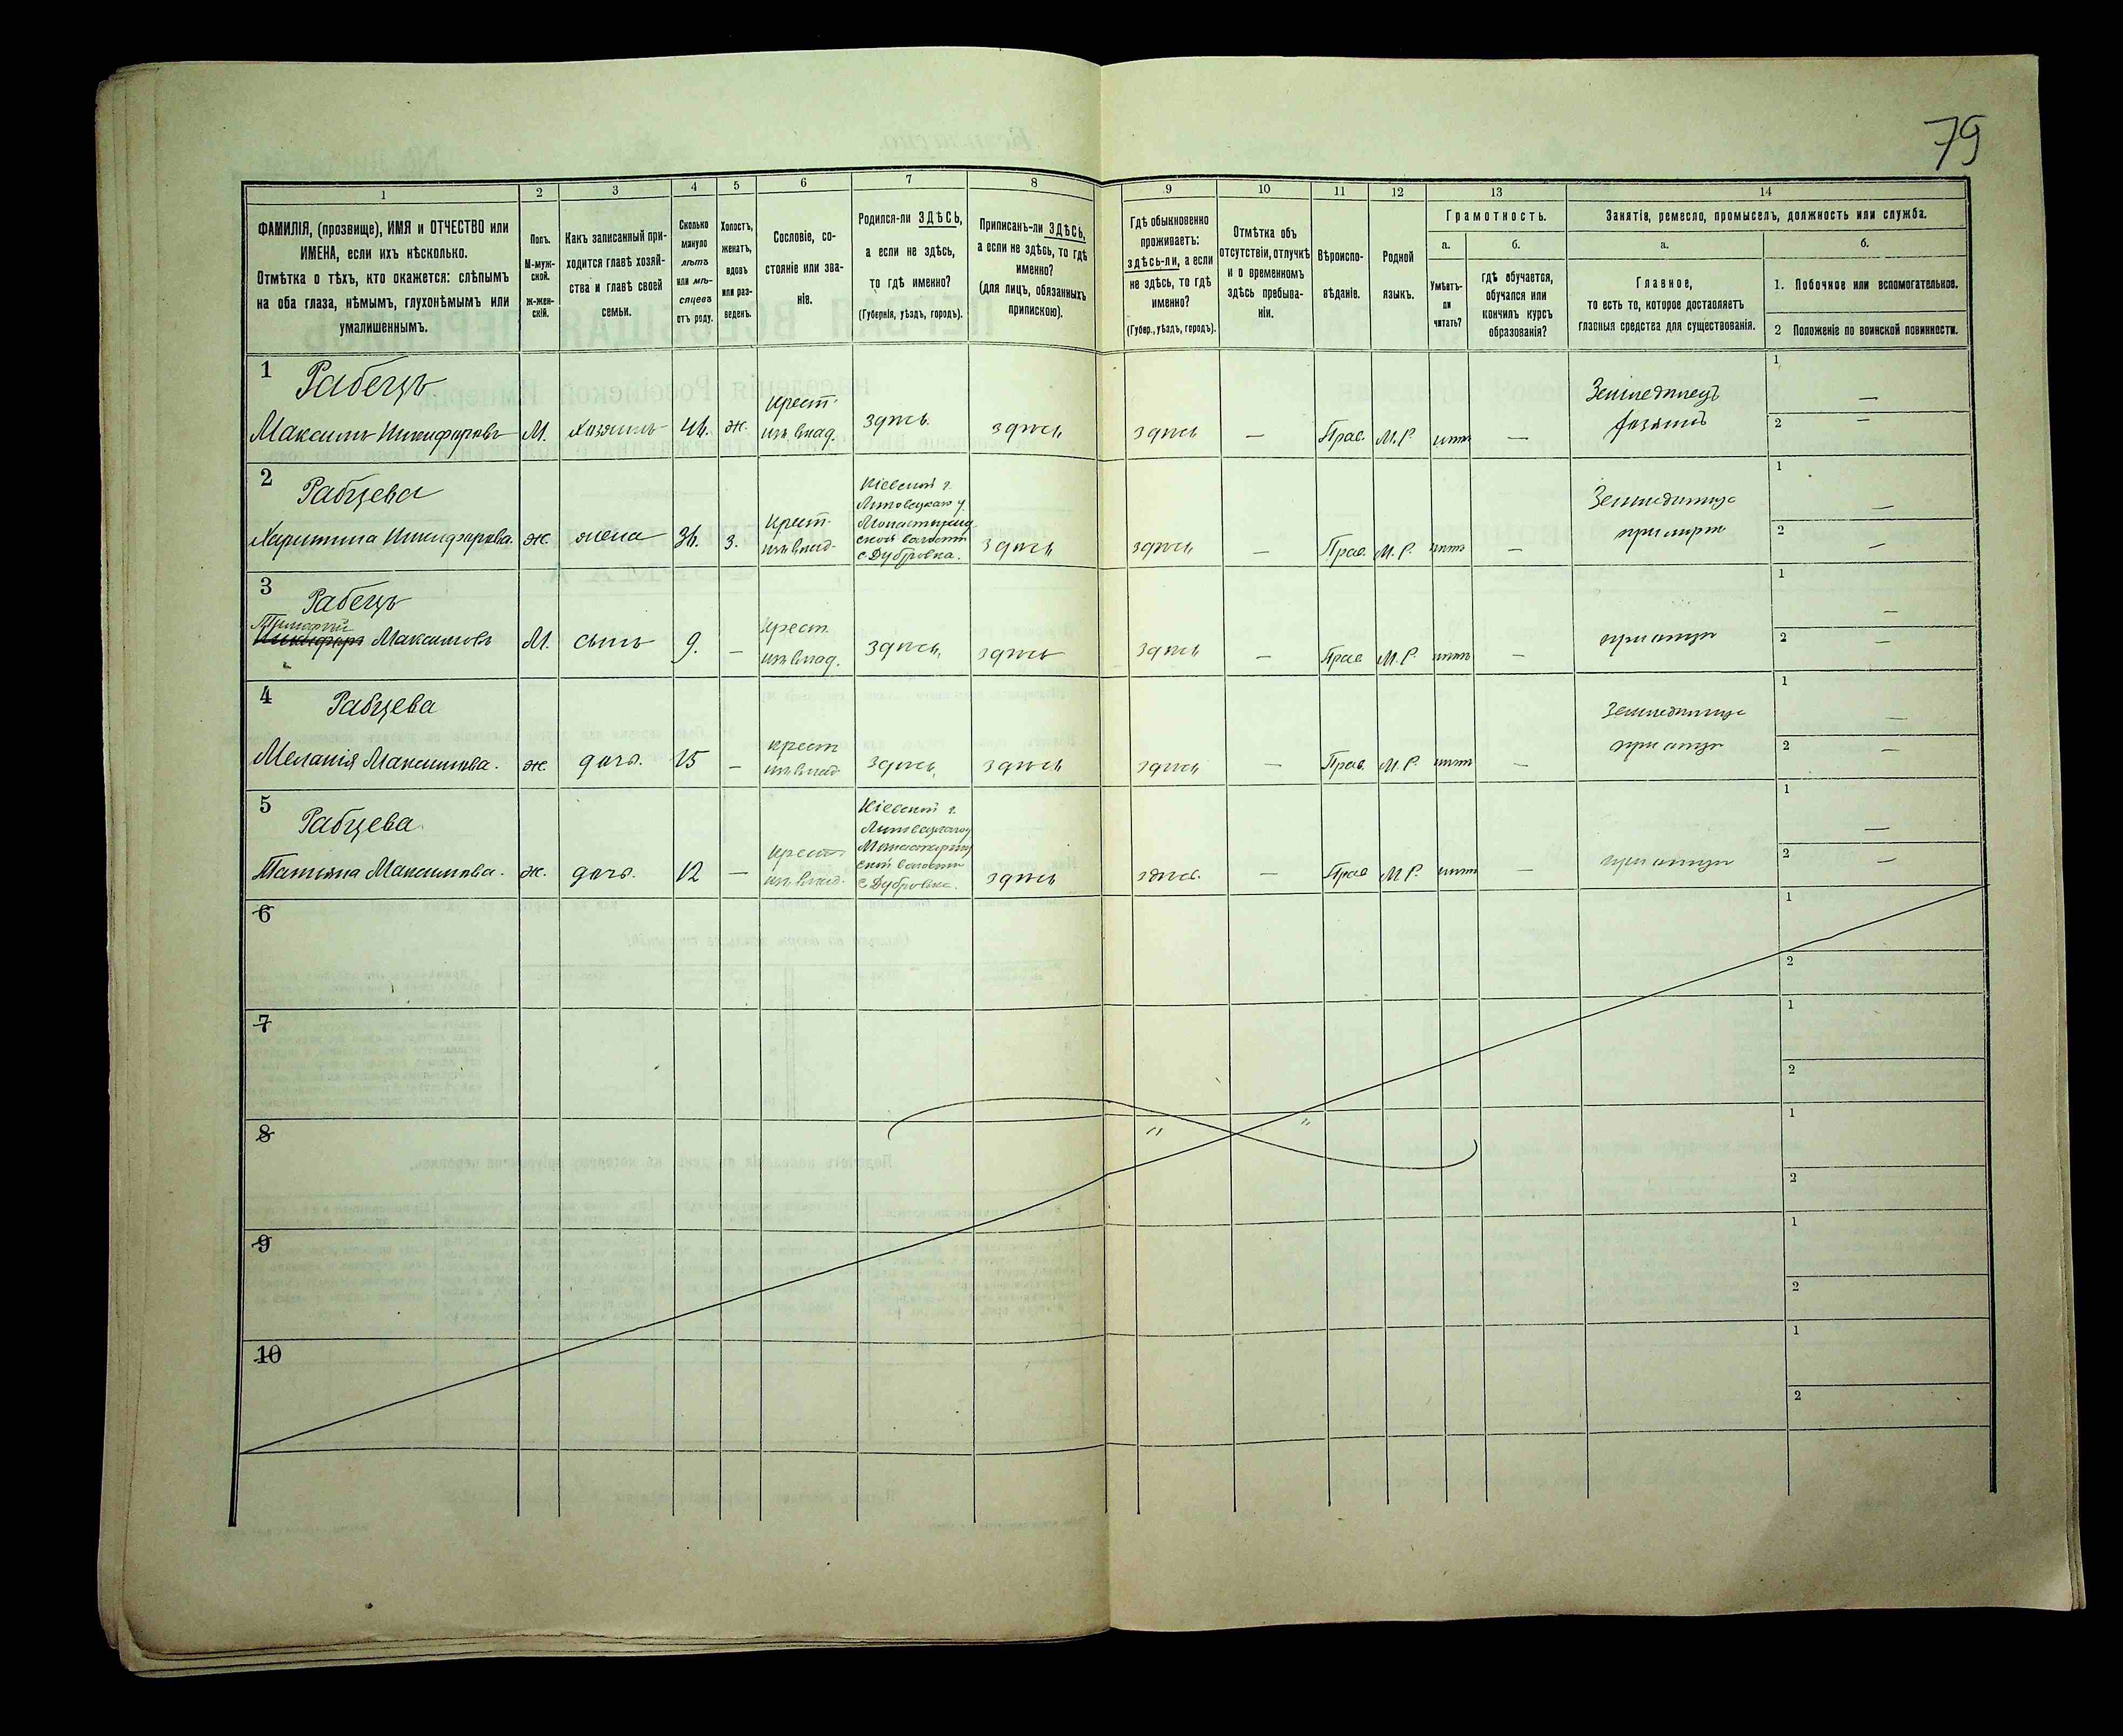 79
1
2
3
4
5
6
7
8
9
10
11
12
13
14
ФАМИЛІЯ, (прозвище), ИМЯ и ОТЧЕСТВО или
ИМЕНА, если ихъ нѣсколько.
Отмѣтка о тѣхъ, кто окажется: слѣпымъ
на оба глаза, нѣмымъ, глухонѣмымъ или
умалишеннымъ.
Полъ.
М-муж-
ской.
Ж-жен-
скій.
Какъ записанный при-
ходится главѣ хозяй-
ства и главѣ своей
семьи.
Сколько
минуло
лѣтъ
или мѣ-
сяцевъ
отъ роду.
Холостъ,
женатъ,
вдовъ
или раз-
веденъ.
Сословіе, со-
стояніе или зва-
ніе.
Родился-ли ЗДѢСЬ,
а если не здѣсь,
то гдѣ именно?
(Губернія, уѣздъ, городъ).
Приписанъ-ли ЗДѢСЬ,
а если не здѣсь, то гдѣ
именно?
(для лицъ, обязанныхъ
припискою).
Гдѣ обыкновенно
проживаетъ:
здѣсь-ли, а если
не здѣсь, то гдѣ
именно?
(Губер., уѣздъ, городъ).
Отмѣтка объ
отсутствіи, отлучкѣ
и о временномъ
здѣсь пребыва-
ніи.
Вѣроиспо-
вѣданіе.
Родной
языкъ.
Грамотность.
а.
Умѣетъ-
ли
читать?
б.
гдѣ обучается,
обучался или
кончилъ курсъ
образованія?
Занятія, ремесло, промыселъ, должность или служба.
а.
Главное,
то есть то, которое доставляетъ
главныя средства для существованія.
б.
1. Побочное или вспомогательное.
2 Положеніе по воинской повинности.
1 Рабецъ
Максимъ Никифоровъ М. хозяинъ 46. ж. крест. изъ влад. здѣсь. здѣсь здѣсь — Прав. М.Р. нѣтъ — Земледѣлецъ хозяинъ 1 — 2 —
2 Рабцева
Харитина Никифорова. ж. жена 36. з. Крест. изъ влад. Кіевской г.
Липовецкаго у.
Монастырищ
ской волости
с. Дубровка. здѣсь здѣсь — Прав. М.Р. нѣтъ — Земледѣлица при мужѣ 1 — 2 —
3 Рабецъ
Тимофей
Никифоръ Максимовъ М. сынъ 9. — Крест. изъ влад. здѣсь, здѣсь здѣсь — Прав М.Р. нѣтъ — при отцѣ 1 — 2 —
4 Рабцева
Меланія Максимова. ж. дочь. 15 — крест изъ влад. здѣсь, здѣсь здѣсь — Прав. М.Р. нѣтъ — Земледѣлица при отцѣ 1 — 2 —
5 Рабцева.
Татьяна Максимова. ж. дочь. 12 — крест изъ влад. Кіевской г.
Липовецкаго у
Монастырищ
ской волости
с. Дубровка. здѣсь здѣсь. — Прав М.Р. нѣтъ — при отцѣ 1 — 2 —
6 1
2
7 1
2
8 " " 1
2
9 1
2
10 1
2